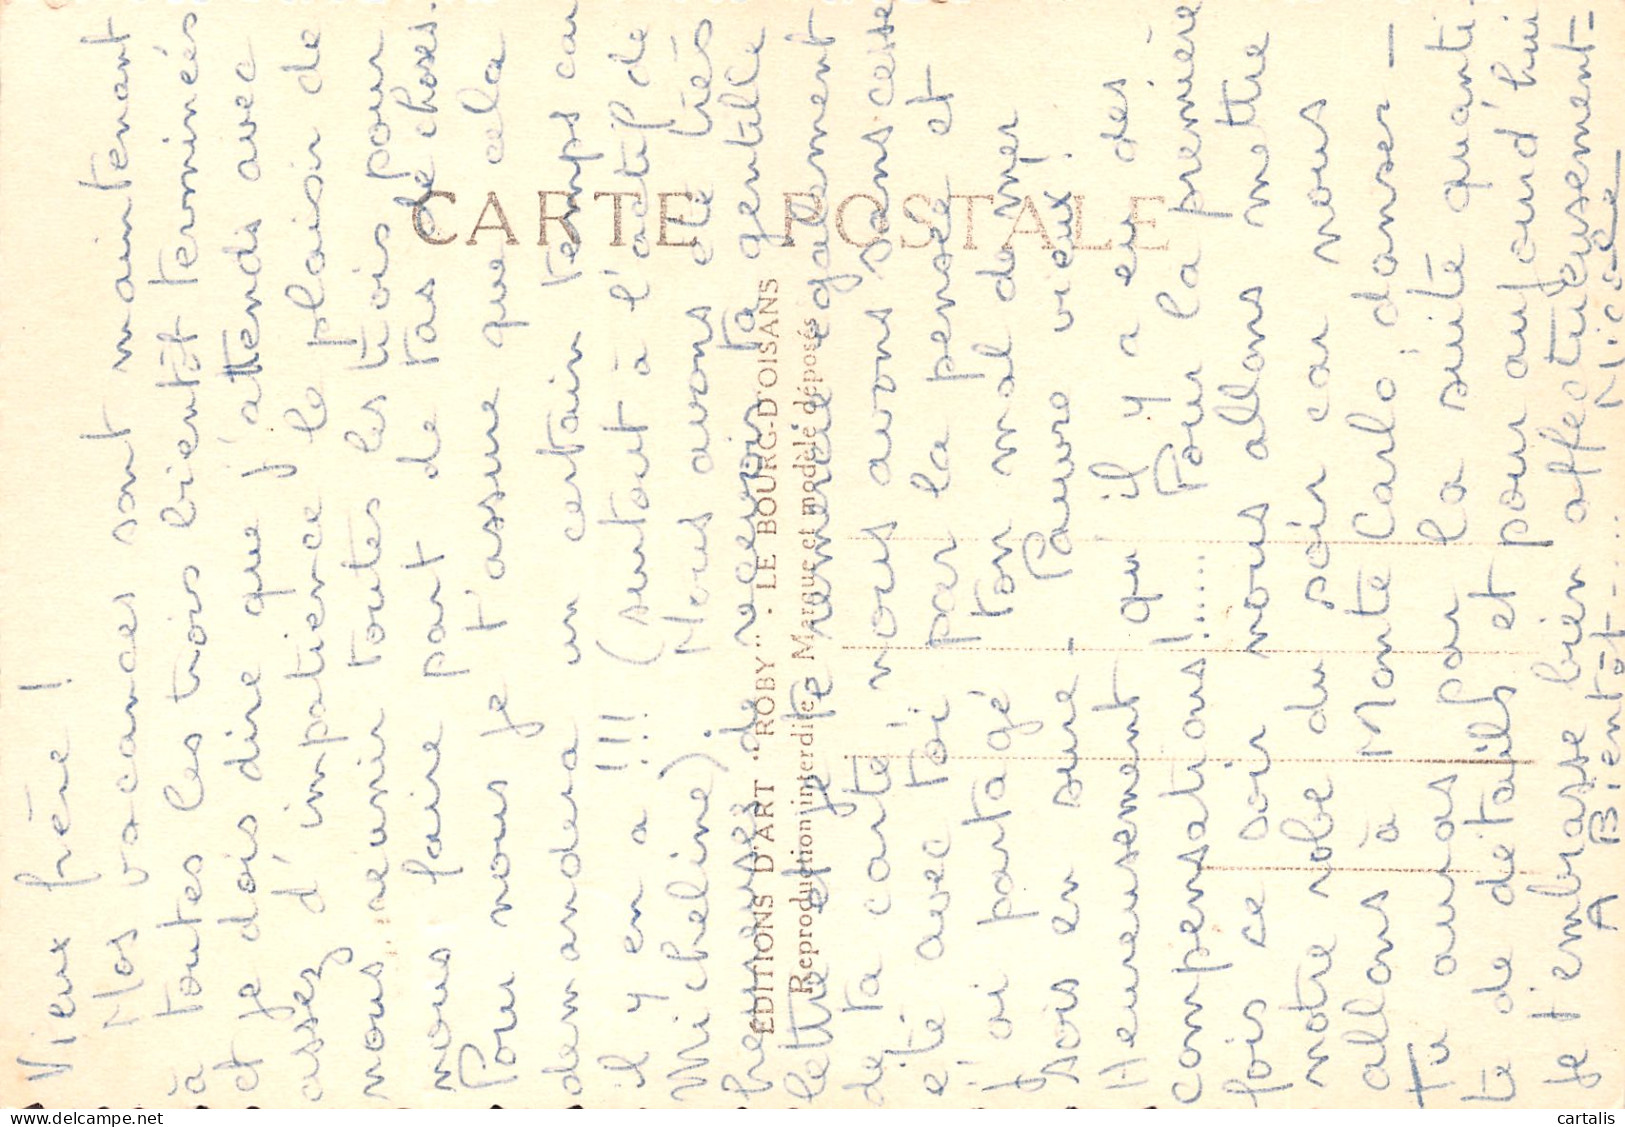 Vieux frère !
Nos vacances sont maintenant
à toutes les trois bientôt terminées
et je dois dire que j'attends avec
assez d'impatience le plaisir de
nous réunir toutes les trois pour
nous faire part de tas de choses.
Pour nous je t'assure que cela
demandera un certain temps car
il y en a !!! (surtout à l'actif de
Micheline). Nous avons été très
heureuses de recevoir ta gentille
lettre et je te remercie également
de ta carte nous avons sans cesse
été avec toi par la pensée et
j'ai partagé ton mal de mer
sois en sure - Pauvre vieux !
Heureusement qu'il y a eu des
compensations !...... Pour la première
fois ce soir nous allons mettre
notre robe du soir car nous
allons à Monte Carlo danser -
Tu auras par la suite quanti-
té de détails et pour aujourd'hui
je t'embrasse bien affectueusement -
A Bientôt.... Nicole
CARTE POSTALE
EDITIONS D'ART "ROBY" - LE BOURG-D'OISANS
Reproduction interdite Marque et modèle déposés
cartalis